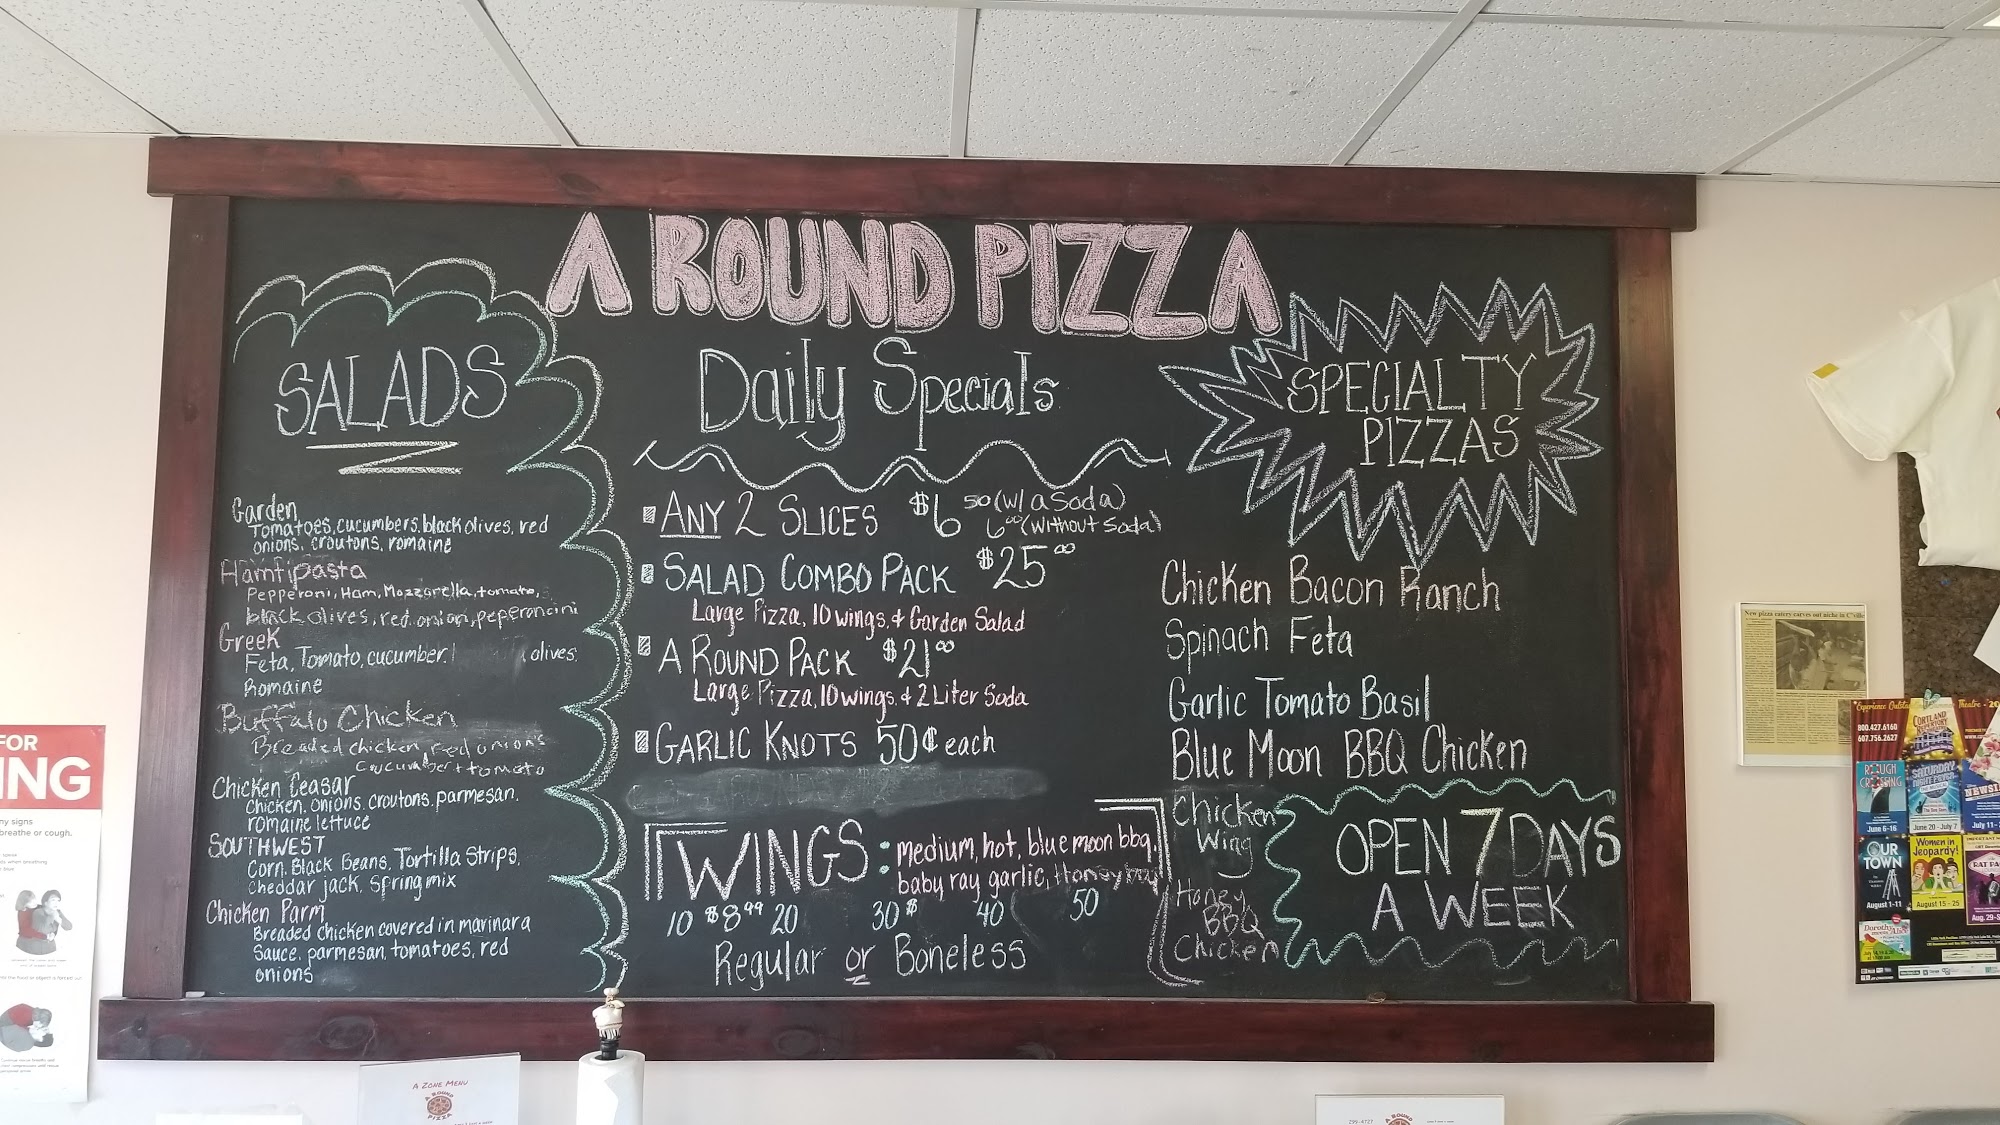 A ROUND PIZZA
SALADS
Garden
Tomatoes, cucumbers, black olives, red
onions, croutons, romaine
Hamfipasta
Pepperoni, Ham, Mozzarella, tomato,
black olives, red onion, peperoncini
Greek
Feta, Tomato, cucumber, olives,
Romaine
Buffalo Chicken
Breaded chicken, red onions
Cucumber + tomato
Chicken Ceasar
Chicken, onions, croutons, parmesan,
romaine lettuce
SOUTHWEST
Corn, Black Beans, Tortilla Strips,
cheddar jack, spring mix
Chicken Parm
Breaded chicken covered in marinara
Sauce, parmesan, tomatoes, red
onions
Daily Specials
ANY 2 SLICES $6 50 (w/ a Soda)
6 00 (without Soda)
SALAD COMBO PACK $25 00
Large Pizza, 10 wings, & Garden Salad
A ROUND PACK $21 00
Large Pizza, 10 wings, & 2 Liter Soda
GARLIC KNOTS 50¢ each
WINGS: medium, hot, blue moon bbq,
baby ray garlic, Honey bbq
10 $8 99 20 30 $ 40 50
Regular or Boneless
SPECIALTY
PIZZAS
Chicken Bacon Ranch
Spinach Feta
Garlic Tomato Basil
Blue Moon BBQ Chicken
Chicken
Wing
Honey
BBQ
Chicken
OPEN 7 DAYS
A WEEK
FOR
ING
ny signs
breathe or cough.
A ZONE MENU
A ROUND
PIZZA
299-4727
A ROUND
New pizza eatery carves out niche in C'ville
800.427.6160
607.756.2627
CORTLAND
REPERTORY
ROUGH
CROSSING
June 6-16
SATURDAY
NIGHT FEVER
June 20 - July 7
NEWSI
July 11-
OUR
TOWN
August 1-11
Women in
Jeopardy!
August 15 - 25
RAT PA
Aug. 29-S